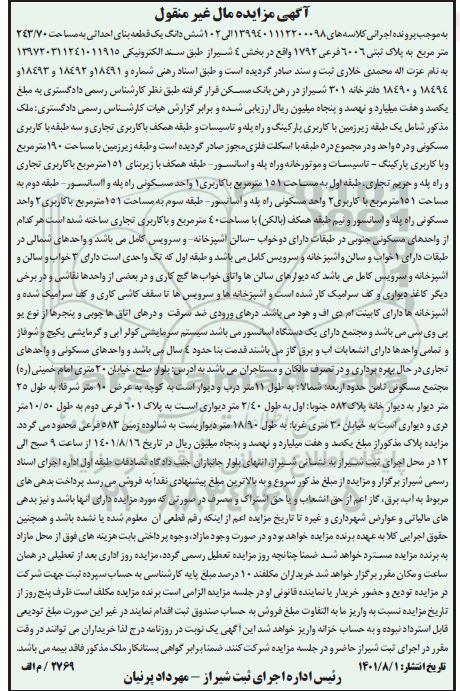 آگهی مزایده مال غیر منقول
به موجب پرونده اجرائی کلاسه های ۱۳۹۹۴۰۱۱۱۲۲۰۰۰۹۸ الی ۱۰۲ شش دانگ یک قطعه بنای احداثی به مساحت ۲۴۳/۷۰
متر مربع به پلاک ثبتی ۶۰۰۶ فرعی ۱۷۹۲ واقع در بخش ۴ شیراز طبق سند الکترونیکی ۱۳۹۷۲۰۳۱۱۲۴۱۰۱۱۹۱۵
به نام عزت اله محمدی خلاری ثبت و سند صادر گردیده است و طبق اسناد رهنی شماره و ۱۸۴۹۱و ۱۸۴۹۲ و ۱۸۴۹۳و
۱۸۴۹۴ و ۱۸۴۹۰ دفترخانه ۳۰۱ شیراز در رهن بانک مسکن قرار گرفته طبق نظر کارشناس رسمی دادگستری به مبلغ
یکصد و هفت میلیارد و نهصد و پنجاه میلیون ریال ارزیابی شده و برابر گزارش هیات کارشناس رسمی دادگستری: ملک
مذکور شامل یک طبقه زیرزمین با کاربری پارکینگ و راه پله و تاسیسات و طبقه همکف باکاربری تجاری و سه طبقه با کاربری
مسکونی و در ۵ واحد و در مجموع در ۵ طبقه با اسکلت فلزی مجوز صادر گردیده است وطبقه زیرزمین با مساحت ۱۹۰ متر مربع
و با کاربری پارکینگ - تاسیسات و موتورخانه وراه پله و اسانسور- طبقه همکف با زیربنای ۱۵۱ مترمربع باکاربری تجاری
و راه پله و حریم تجاری، طبقه اول به مساحت ۱۵۱ مترمربع باکاربری۱ واحد مسکونی راه پله و آاسانسور- طبقه دوم به
مساحت ۱۵۱مترمربع با کاربری۲ واحد مسکونی راه پله و آسانسور- طبقه سوم به مساحت ۱۵۱مترمربع باکاربری ۲ واحد
مسکونی راه پله و اسانسور و نیم طبقه همکف (بالکن) با مساحت۴۰ مترمربع و باکاربری تجاری ساخته شده است هر کدام
از واحدهای مسکونی جنوبی در طبقات دارای دوخواب -سالن اشپزخانه- و سرویس کامل می باشد و واحدهای شمالی در
طبقات دارای ۱خواب و سالن و آشپزخانه و سرویس کامل می باشد و طبقه اول که تک واحدی است دارای ۳ خواب و سالن و
اشپزخانه و سرویس کامل می باشد که دیوارهای سالن ها واتاق خواب ها گچ کاری و در بعضی از واحدها نقاشی و در برخی
دیگر کاغذ دیواری و کف سرامیک کار شده است و آشپزخانه ها و سرویس ها تا سقف کاشی کاری و کف سرامیک شده و
اشپزخانه ها دارای کابینت ام دی اف و هود می باشند. درهای ورودی ضد سرقت و درهای اتاق ها چوبی و پنجرها از نوع یو
پی وی سی می باشد و مجتمع دارای یک دستگاه آسانسور می باشد سیستم سرمایشی کولر آبی و گرمایشی پکیج و شوفاژ
و تمامی واحدها دارای انشعابات آب و برق گاز می باشند قدمت بنا حدود ۴ سال می باشد و واحدهای مسکونی و واحدهای
تجاری در حال بهره برداری و در تصرف مالکان و مستاجران می باشد به ادرس: بلوار صلح، خیابان ۲۰متری امام خمینی (ره)
مجتمع مسکونی ثامن حدود اربعه: شمالا: به طول ۱۱متر درب و دیوار است به کوچه به عرض ۱۰ متر شرقا: به طول ۲۵
متر دیوار به دیوار خانه پلاک۵۸۲ جنوبا: اول به طول ۲/۴۰ متر دیواری است به پلاک ۶۰۱ فرعی دوم به طول ۱۰/۵۰متر
دری و دیواری است به خیابان ۲۰ متری غربا: به طول ۱۸/۹۰ متر دیواریست به شالوده زمین ۵۸۳ فرعی محدود می گردد.
مزایده پلاک مذکور از مبلغ یکصد و هفت میلیارد و نهصد و پنجاه میلیون ریال در تاریخ ۱۴۰۱/۸/۱۶ از ساعت ۹ صبح الی
۱۲ در محل اجرای ثبت شیراز به نشانی شیراز، انتهای بلوار جانبازان جنب دادگاه تصادفات طبقه اول اداره اجرای اسناد
رسمی شیراز برگزار و مزایده از مبلغ مذکور شروع و به بالاترین مبلغ پیشنهادی نقدا به فروش می رسد پرداخت بدهی های
مربوط به آب، برق، گاز اعم از حق انشعاب و یا حق اشتراک و مصرف در صورتی که مورد مزایده دارای آنها باشد و نیز بدهی
های مالیاتی و عوارض شهرداری و غیره تا تاریخ مزایده اعم از اینکه رقم قطعی آن معلوم شده یا نشده باشد و همچنین
حقوق اجرایی کلا به عهده برنده مزایده خواهد بود و در صورت وجود مازاد، وجوه پرداختی بابت هزینه های فوق از محل مازاد
به برنده مزایده مسترد خواهد شد ضمنا چنانچه روز مزایده تعطیل رسمی گردد، مزایده روز اداری بعد از تعطیلی در همان
ساعت و مکان مقرر برگزار خواهد شد خریداران مکلفند ۱۰ درصد مبلغ پایه کارشناسی به حساب سپرده ثبت جهت شرکت
در مزایده تودیع و حضور خریدار یا نماینده قانونی او در جلسه مزایده الزامی است برنده مزایده مکلف است ظرف پنج روز از
تاریخ مزایده نسبت به واریز ما به التفاوت مبلغ فروش به حساب صندوق ثبت اقدام نمایند در غیر این صورت مبلغ تودیعی
قابل استرداد نبوده و به حساب خزانه واریز خواهد شد این آگهی یک نوبت در روزنامه درج لذا خریداران می توانند در وقت
مقرر در اجرای ثبت شیراز حاضر و در جلسه مزایده شرکت کنند. ضمنا برابر گواهی بستانکار ملک مذکور فاقد بیمه می باشد.
تاریخ انتشار: ۱۴۰۱/۸/۱
۲۷۶۹ / م الف
رئیس اداره اجرای ثبت شیراز - مهرداد پرنیان